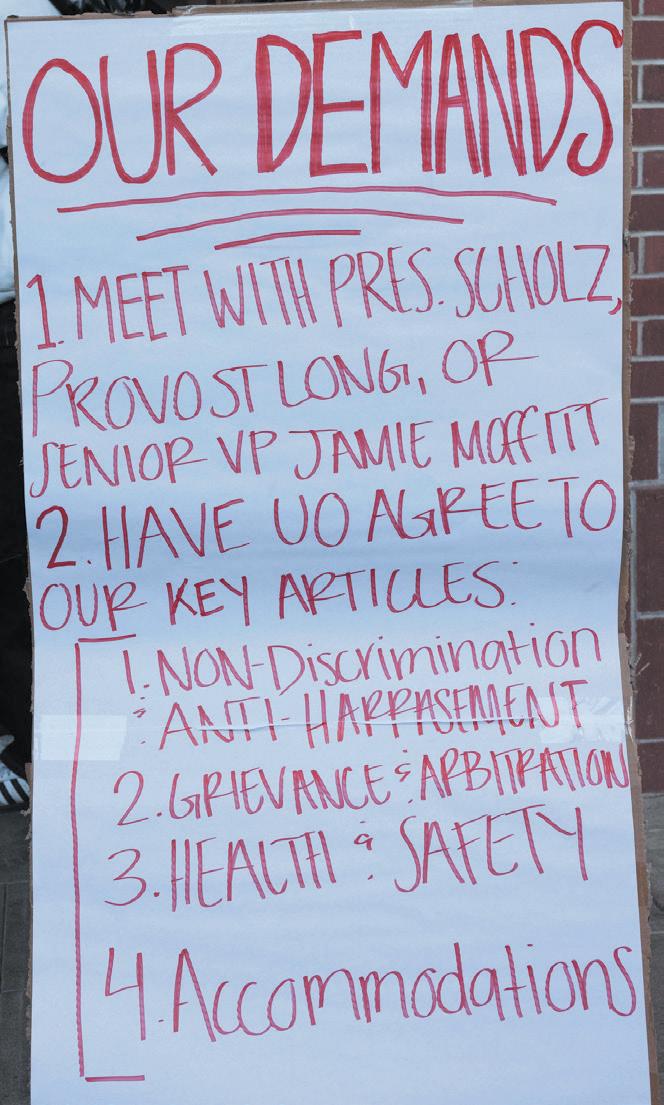 OUR DEMANDS
1. MEET WITH PRES. SCHOLZ,
PROVOST LONG, OR
SENIOR VP JAMIE MOFFITT
2. HAVE UO AGREE TO
OUR KEY ARTICLES:
1. NON-Discrimination
& ANTI-HARRASEMENT
2. GRIEVANCE & ARBITRATION
3. HEALTH & SAFETY
4. Accommodations